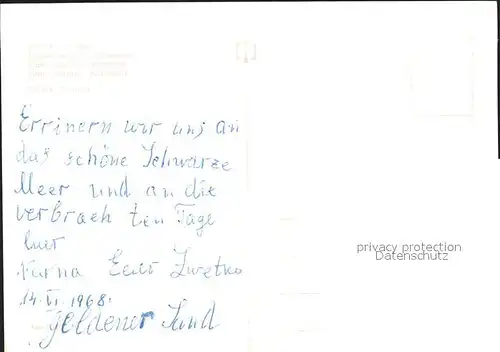 Errinern wir uns an
das schöne Schwarze
Meer und an die
verbrach ten Tage
hier
Varna
14.VI.1968.
goldener Sand
privacy protection
Datenschutz